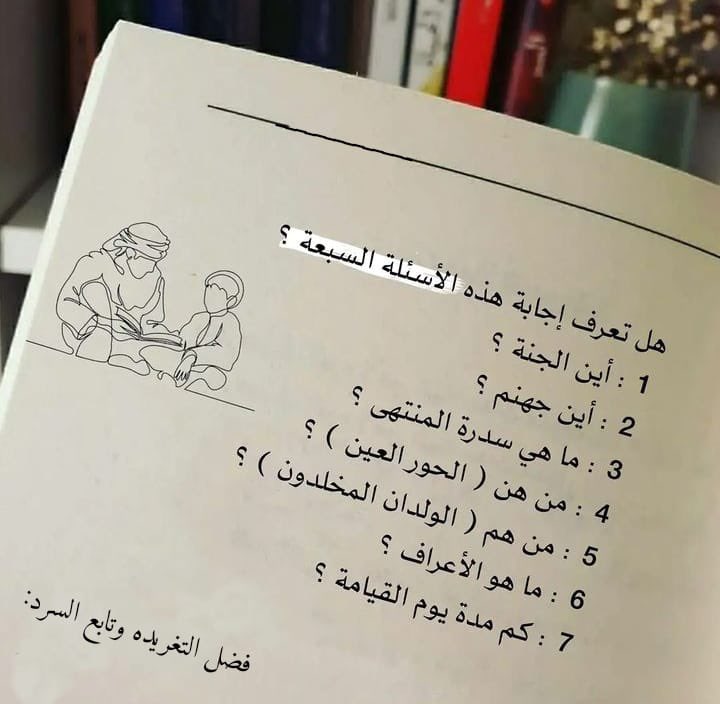 هل تعرف إجابة هذه الأسئلة السبعة ؟
1 : أين الجنة ؟
2 : أين جهنم ؟
3 : ما هي سدرة المنتهى ؟
4 : من هن ( الحور العين ) ؟
5 : من هم ( الولدان المخلدون ) ؟
6 : ما هو الأعراف ؟
7 : كم مدة يوم القيامة ؟
فضل التغريده وتابع السرد: